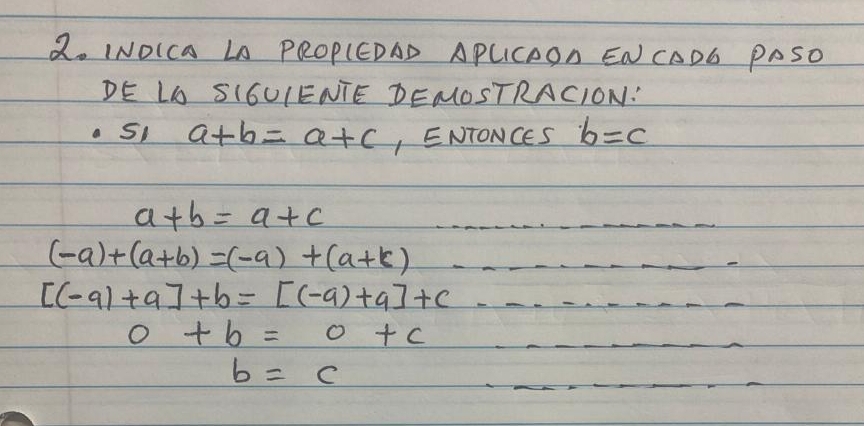 2. INDICA LA PROPIEDAD APLICADA EN CADA PASO
DE LA SIGUIENTE DEMOSTRACION:
• SI a+b= a+c, ENTONCES b=c
a+b= a+c
(-a)+(a+b)=(-a) +(a+c)
[(-a)+a]+b= [(-a)+a]+c
0 +b = 0 +c
b= c